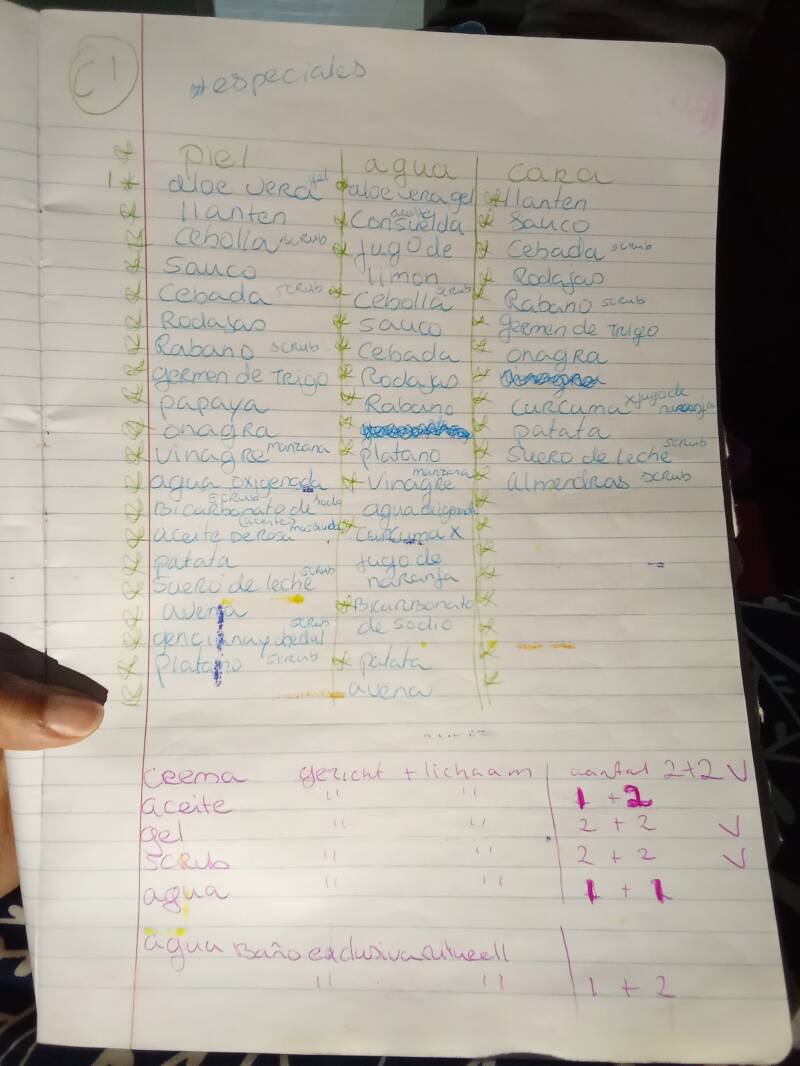 C1
* especiales
piel agua cara
1* aloe vera gel * aloe vera gel * llanten
llanten * Consuelda aceite * Sauco
Cebolla scrub * jugo de * Cebada scrub
Sauco limon * Rodajas
Cebada scrub * Cebolla scrub * Rabano scrub
Rodajas * Sauco * germen de Trigo
Rabano scrub * Cebada * onagra
germen de Trigo * Rodajas
papaya * Rabano * Curcuma x jugo de naranja
onagra * patata
Vinagre manzana * platano * Suero de leche scrub
agua oxigenada * Vinagre manzana * almendras scrub
Bicarbonato de Sodio scrub agua oxigenada
aceite De Rosa (aceite) mosqueda * Curcuma x
patata jugo de
Suero de leche scrub naranja
avena * Bicarbonato
scrub de sodio
Platano scrub * patata
avena
Ceema gezicht + lichaam aantal 2+2 V
aceite " " 1 + 2
gel " " 2 + 2 V
SCRUB " " 2 + 2 V
agua " " 1 + 1
agua Baño exclusiva ritueell
" " 1 + 2